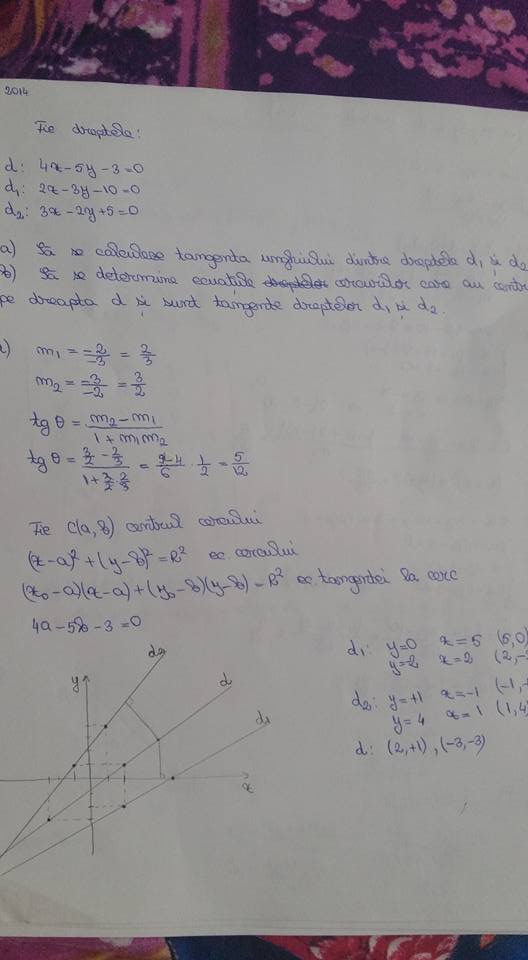 2014
Fie dreptele:
d: 4x-5y-3=0
d₁: 2x-3y-10=0
d₂: 3x-2y+5=0
a) Să se calculeze tangenta unghiului dintre dreptele d₁ și d₂
b) Să se determine ecuațiile dreptelor cercurilor care au centr
pe dreapta d și sunt tangente dreptelor d₁ și d₂.
a) m₁ = -2/-3 = 2/3
m₂ = -3/-2 = 3/2
tg θ = (m₂-m₁)/(1+m₁m₂)
tg θ = (3/2 - 2/3)/(1+3/2·2/3) = (9-4)/6 · 1/2 = 5/12
Fie C(a,b) centrul cercului
(x-a)²+(y-b)²=R² ec. cercului
(x₀-a)(x-a)+(y₀-b)(y-b)=R² ec. tangentei la cerc
4a-5b-3=0
d₁: y=0 x=5 (5,0)
y=2 x=2 (2,-
d₂: y=+1 x=-1 (-1,
y=4 x=1 (1,4)
d: (2,+1), (-3,-3)
y
d₂
d
d₁
x